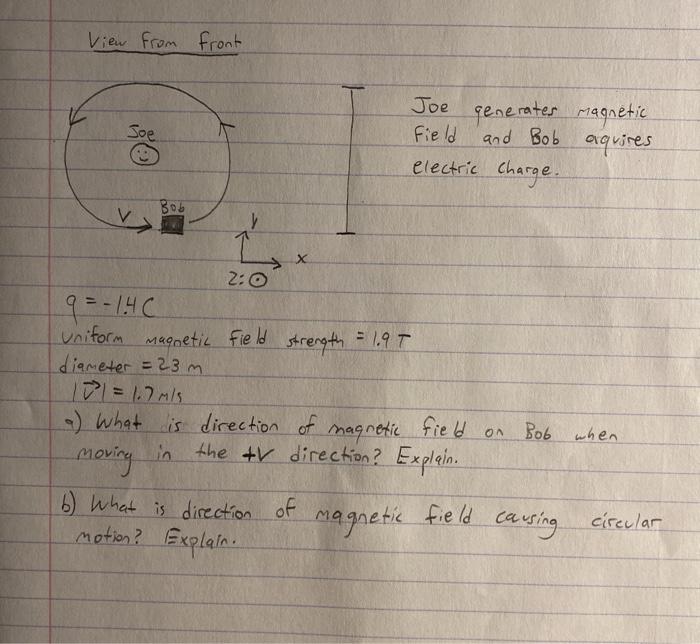 View From Front
Joe generates magnetic
field and Bob aquires
electric charge.
Joe
Bob
V
y
x
z: ⊙
q = -1.4 C
uniform magnetic field strength = 1.9 T
diameter = 23 m
|V⃗| = 1.7 m/s
a) What is direction of magnetic field on Bob when
moving in the +V direction? Explain.
b) What is direction of magnetic field causing circular
motion? Explain.